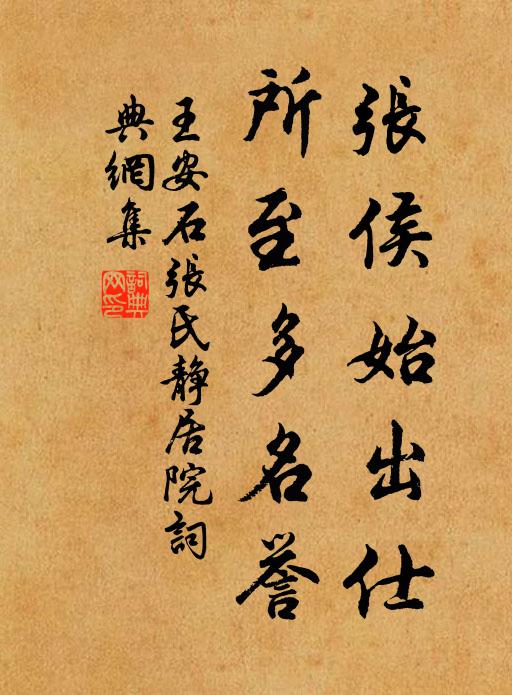 張侯始出仕
所至多名誉
王安石張氏靜居院詞
典網集
詞典网印